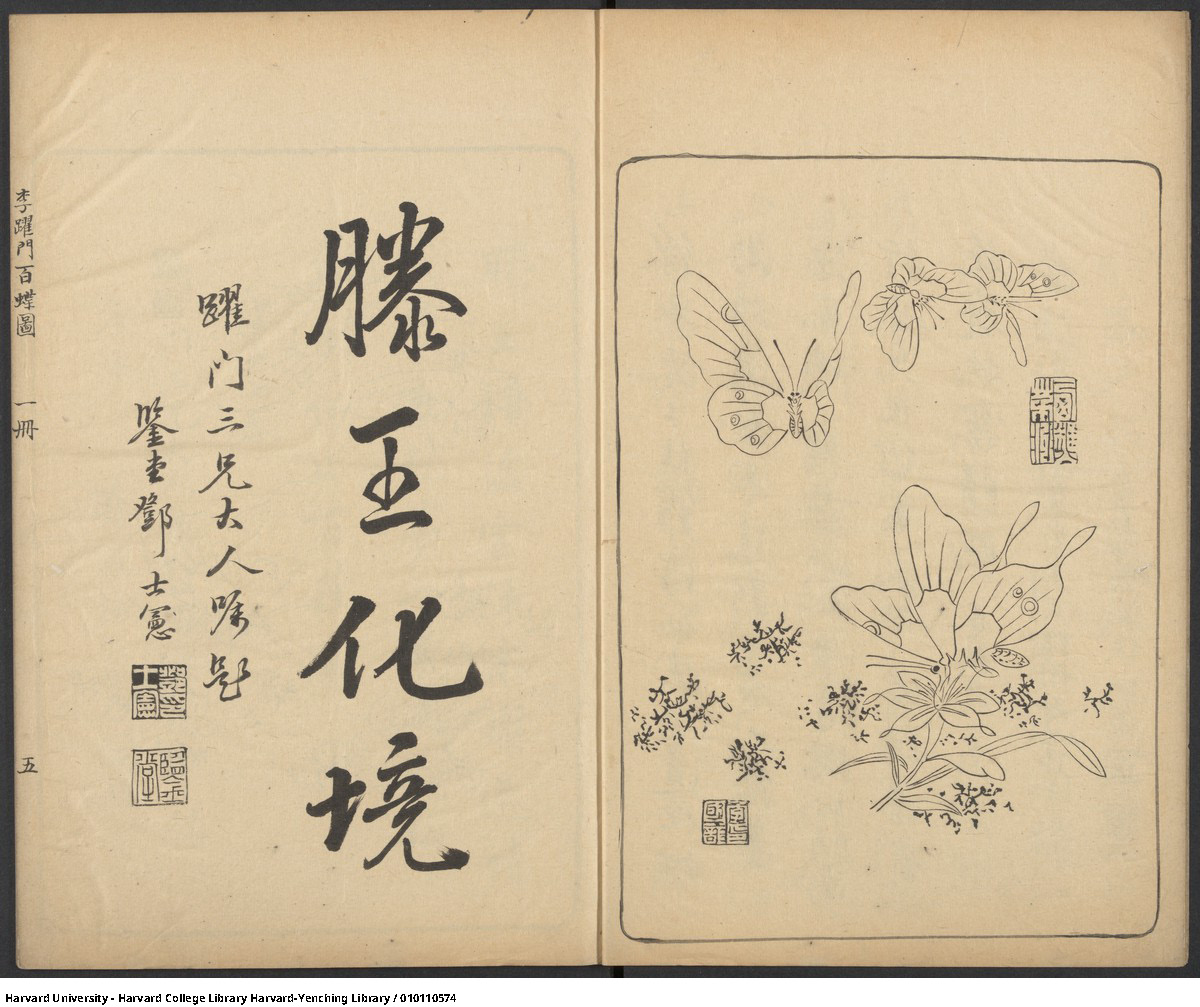 滕王化境
躍门三兄大人嘱题
鑒堂鄧士憲
李躍門百蝶圖 一冊 五
Harvard University - Harvard College Library Harvard-Yenching Library / 010110574